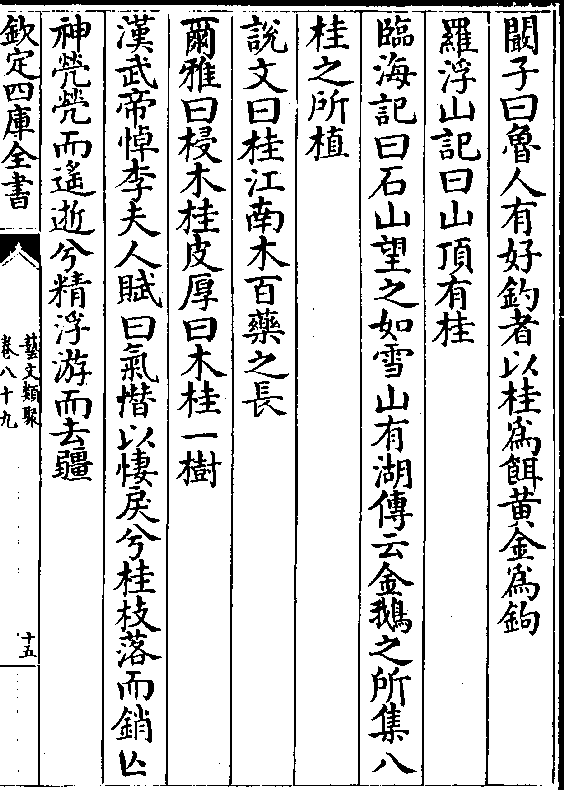 闞子曰魯人有好釣者以桂為餌黄金為鉤
羅浮山記曰山頂有桂
臨海記曰石山望之如雪山有湖傳云金鵝之所集八
桂之所植
說文曰桂江南木百藥之長
爾雅曰梫木桂皮厚曰木桂一樹
漢武帝悼李夫人賦曰氣憯以悽戾兮桂枝落而銷亡
神煢煢而遙逝兮精浮游而去疆
欽定四庫全書
藝文類聚
卷八十九
十五